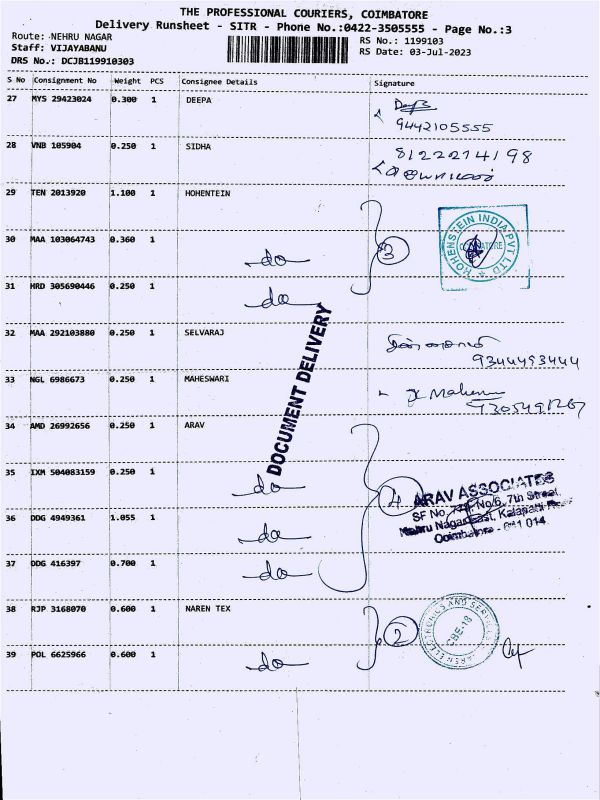 THE PROFESSIONAL COURIERS, COIMBATORE
Delivery Runsheet - SITR - Phone No.:0422-3505555 - Page No.:3
Route: NEHRU NAGAR
RS No.: 1199103
Staff: VIJAYABANU
RS Date: 03-Jul-2023
DRS No.: DCJB119910303
S No Consignment No Weight PCS Consignee Details Signature
27 MYS 29423024 0.300 1 DEEPA
9442105555
28 VNB 105904 0.250 1 SIDHA
8122214198
29 TEN 2013920 1.100 1 HOHENTEIN
HOHENSTEIN INDIA PVT LTD
30 MAA 103064743 0.360 1 do 3
31 HRD 305690446 0.250 1 do
DOCUMENT DELIVERY
32 MAA 292103880 0.250 1 SELVARAJ
9344493444
33 NGL 6986673 0.250 1 MAHESWARI
34 AMD 26992656 0.250 1 ARAV
35 IXM 504083159 0.250 1 do 4
ARAV ASSOCIATES
SF No. No/6, 7th Street,
Nehru Nagar East, Kalapatti
Coimbatore - 641 014
36 DDG 4949361 1.055 1 do
37 DDG 416397 0.700 1 do
38 RJP 3168070 0.600 1 NAREN TEX 2
ELECTRONICS AND
CBE-18
39 POL 6625966 0.600 1 do